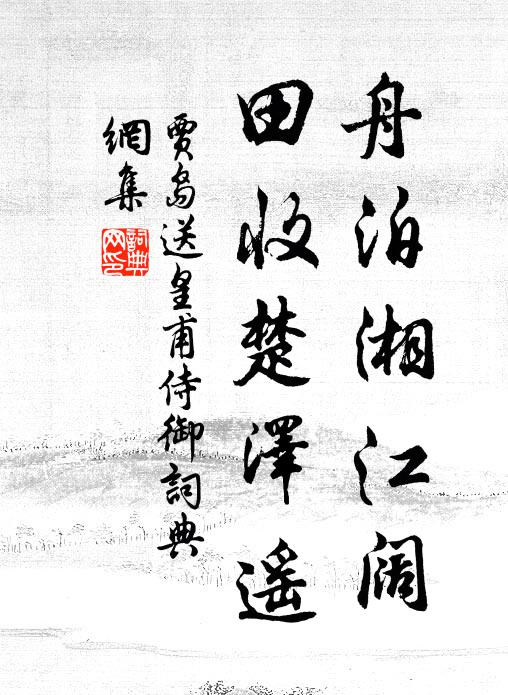 舟泊湘江阔
田收楚澤遥
賈島送皇甫侍御詞典
網集
詞典網印